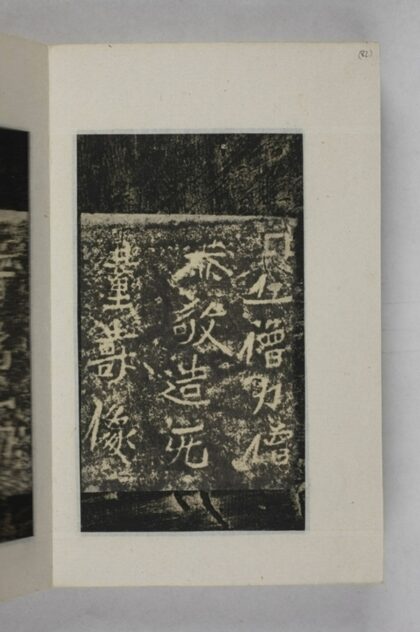 比丘僧力僧
恭敬造无
量壽像